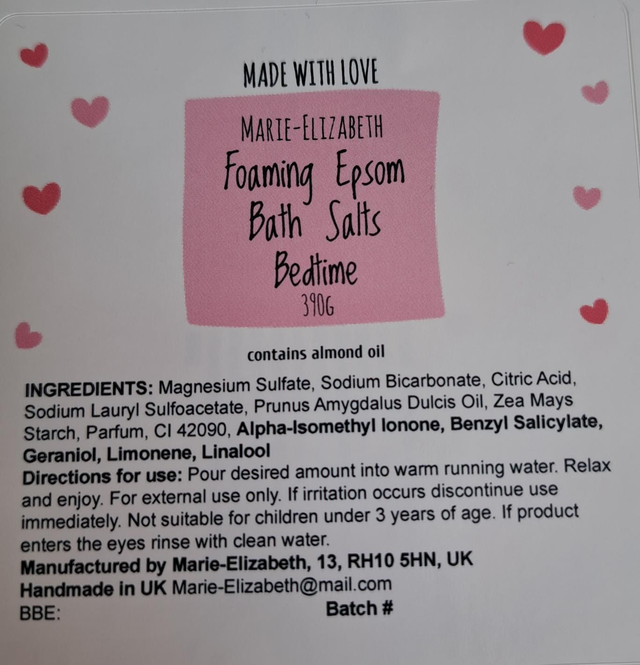 MADE WITH LOVE
MARIE-ELIZABETH
Foaming Epsom
Bath Salts
Bedtime
390G
contains almond oil
INGREDIENTS: Magnesium Sulfate, Sodium Bicarbonate, Citric Acid,
Sodium Lauryl Sulfoacetate, Prunus Amygdalus Dulcis Oil, Zea Mays
Starch, Parfum, CI 42090, Alpha-Isomethyl Ionone, Benzyl Salicylate,
Geraniol, Limonene, Linalool
Directions for use: Pour desired amount into warm running water. Relax
and enjoy. For external use only. If irritation occurs discontinue use
immediately. Not suitable for children under 3 years of age. If product
enters the eyes rinse with clean water.
Manufactured by Marie-Elizabeth, 13, RH10 5HN, UK
Handmade in UK Marie-Elizabeth@mail.com
BBE: Batch #